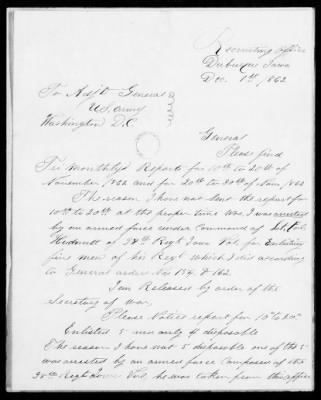 Recruiting Office
Dubuque Iowa
Dec. 1st 1862
To Adjt General
U.S. Army
Washington D.C.
General
Please find
Tri Monthly Reports for 10th to 20th of
November 1862 and for 20th to 30th of Nov 1862
The reason I have not sent the report for
10th to 20th at the proper time was I was arrested
by an armed force under Command of Lt. Col.
of 38th Regt Iowa Vol. for Enlisting
five men of his Regt which I did according
to General orders Nos 154 & 162
I am Released by order of the
Secretary of War,
Please Notice report for 10 to 20
Enlisted 5 and only disposable
The reason I have not 5 disposable one of the 5
was arrested by an armed force composed of the
38th Regt Iowa Vol, he was taken from this office